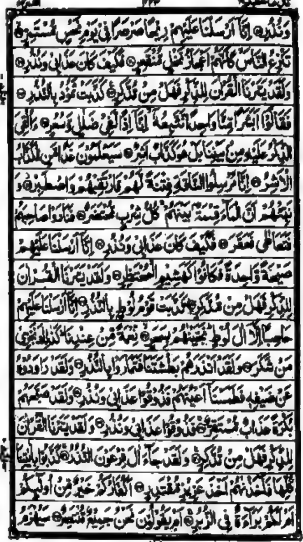 وَنُذُرِ ۝ إِنَّا أَرْسَلْنَا عَلَيْهِمْ رِيحًا صَرْصَرًا فِي يَوْمِ نَحْسٍ مُّسْتَمِرٍّ ۝
تَنزِعُ النَّاسَ كَأَنَّهُمْ أَعْجَازُ نَخْلٍ مُّنقَعِرٍ ۝ فَكَيْفَ كَانَ عَذَابِي وَنُذُرِ ۝
وَلَقَدْ يَسَّرْنَا الْقُرْآنَ لِلذِّكْرِ فَهَلْ مِن مُّدَّكِرٍ ۝ كَذَّبَتْ ثَمُودُ بِالنُّذُرِ ۝
فَقَالُوا أَبَشَرًا مِّنَّا وَاحِدًا نَّتَّبِعُهُ إِنَّا إِذًا لَّفِي ضَلَالٍ وَسُعُرٍ ۝ أَأُلْقِيَ
الذِّكْرُ عَلَيْهِ مِن بَيْنِنَا بَلْ هُوَ كَذَّابٌ أَشِرٌ ۝ سَيَعْلَمُونَ غَدًا مَّنِ الْكَذَّابُ
الْأَشِرُ ۝ إِنَّا مُرْسِلُو النَّاقَةِ فِتْنَةً لَّهُمْ فَارْتَقِبْهُمْ وَاصْطَبِرْ ۝ وَ
نَبِّئْهُمْ أَنَّ الْمَاءَ قِسْمَةٌ بَيْنَهُمْ كُلُّ شِرْبٍ مُّحْتَضَرٌ ۝ فَنَادَوْا صَاحِبَهُمْ
فَتَعَاطَى فَعَقَرَ ۝ فَكَيْفَ كَانَ عَذَابِي وَنُذُرِ ۝ إِنَّا أَرْسَلْنَا عَلَيْهِمْ
صَيْحَةً وَاحِدَةً فَكَانُوا كَهَشِيمِ الْمُحْتَظِرِ ۝ وَلَقَدْ يَسَّرْنَا الْقُرْآنَ
لِلذِّكْرِ فَهَلْ مِن مُّدَّكِرٍ ۝ كَذَّبَتْ قَوْمُ لُوطٍ بِالنُّذُرِ ۝ إِنَّا أَرْسَلْنَا عَلَيْهِمْ
حَاصِبًا إِلَّا آلَ لُوطٍ نَّجَّيْنَاهُم بِسَحَرٍ ۝ نِّعْمَةً مِّنْ عِندِنَا كَذَلِكَ نَجْزِي
مَن شَكَرَ ۝ وَلَقَدْ أَنذَرَهُم بَطْشَتَنَا فَتَمَارَوْا بِالنُّذُرِ ۝ وَلَقَدْ رَاوَدُوهُ
عَن ضَيْفِهِ فَطَمَسْنَا أَعْيُنَهُمْ فَذُوقُوا عَذَابِي وَنُذُرِ ۝ وَلَقَدْ صَبَّحَهُم
بُكْرَةً عَذَابٌ مُّسْتَقِرٌّ ۝ فَذُوقُوا عَذَابِي وَنُذُرِ ۝ وَلَقَدْ يَسَّرْنَا الْقُرْآنَ
لِلذِّكْرِ فَهَلْ مِن مُّدَّكِرٍ ۝ وَلَقَدْ جَاءَ آلَ فِرْعَوْنَ النُّذُرُ ۝ كَذَّبُوا بِآيَاتِنَا
كُلِّهَا فَأَخَذْنَاهُمْ أَخْذَ عَزِيزٍ مُّقْتَدِرٍ ۝ أَكُفَّارُكُمْ خَيْرٌ مِّنْ أُولَئِكُمْ
أَمْ لَكُم بَرَاءَةٌ فِي الزُّبُرِ ۝ أَمْ يَقُولُونَ نَحْنُ جَمِيعٌ مُّنتَصِرٌ ۝ سَيُهْزَمُ